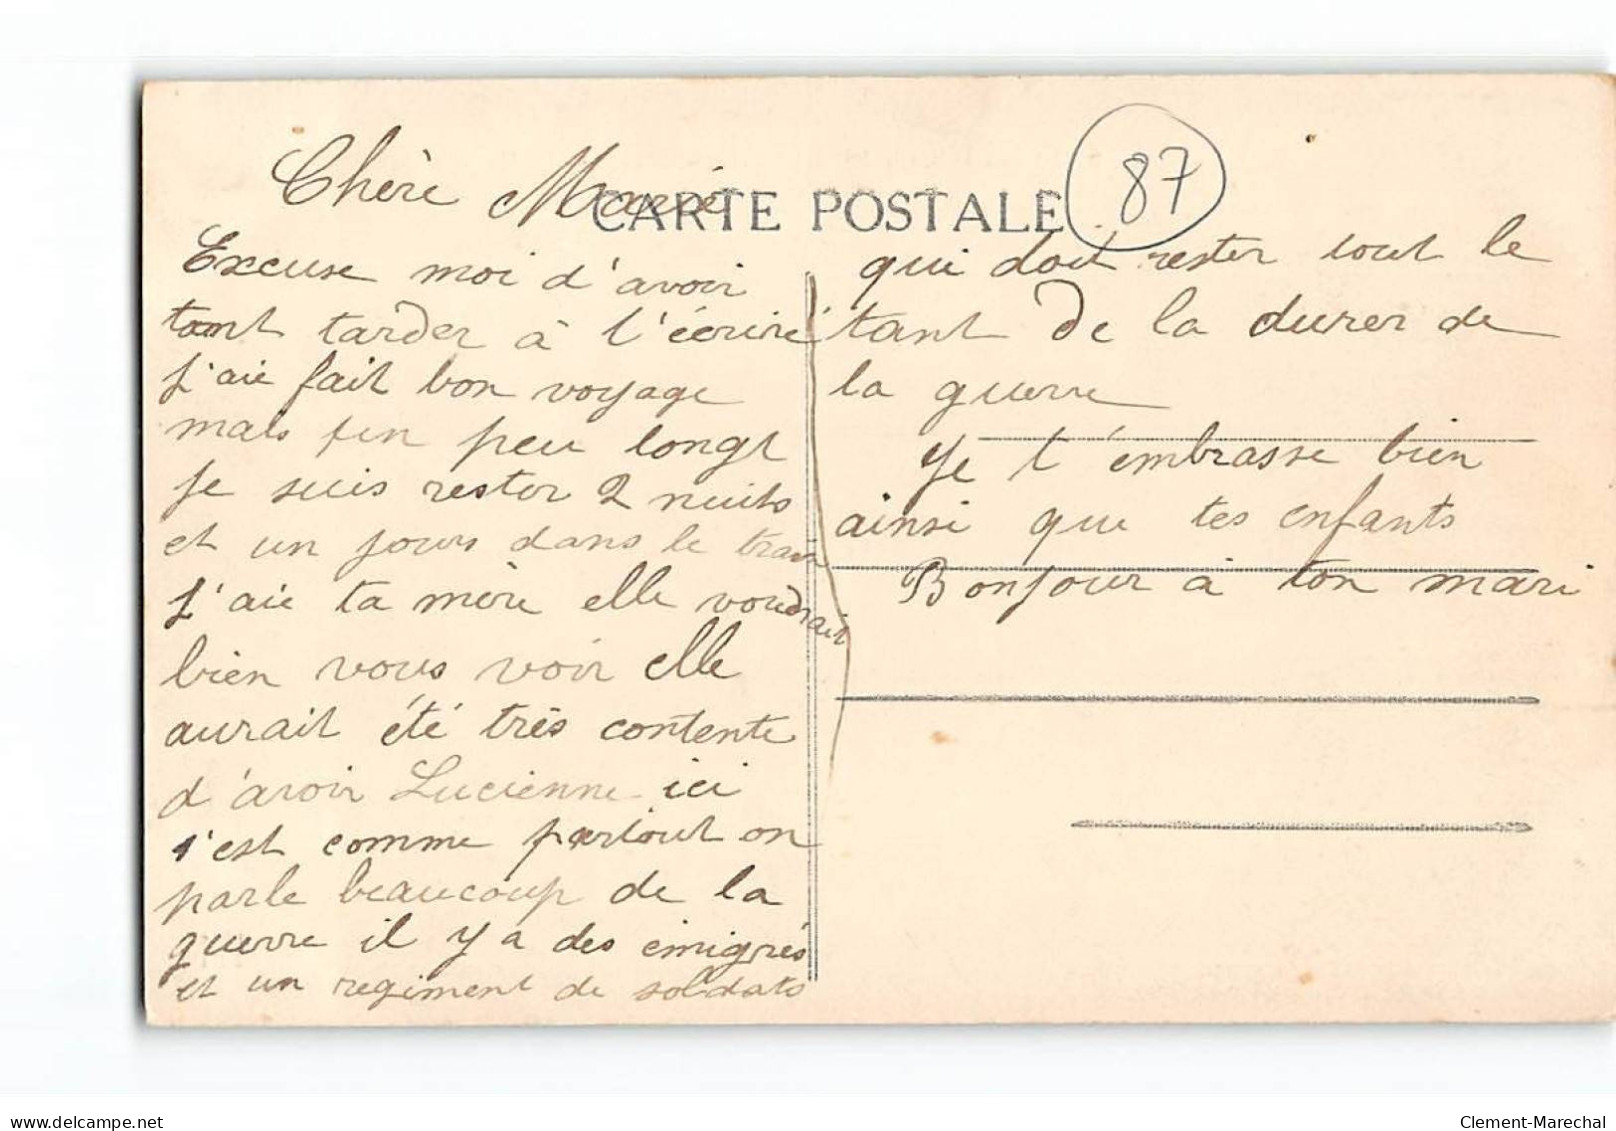 87
CARTE POSTALE
Chère Marie
Excuse moi d'avoir
tant tarder à t'écrire
J'aie fait bon voyage
mais un peu longt
Je suis rester 2 nuits
et un jours dans le train
J'aie ta mère elle voudrait
bien vous voir elle
aurait été très contente
d'avoir Lucienne ici
s'est comme partout on
parle beaucoup de la
guerre il y a des émigrés
et un regiment de soldats
qui doit rester tout le
tant de la durer de
la guerre
Je t'embrasse bien
ainsi que tes enfants
Bonjour à ton mari
delcampe.net
Clement-Marechal